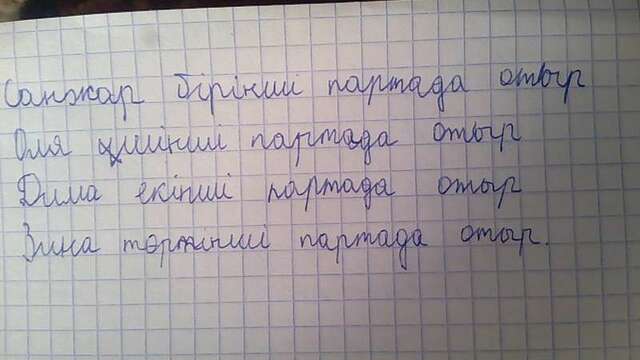 Санжар бірінші партада отыр
Оля үшінші партада отыр
Дима екінші партада отыр
Зина төртінші партада отыр.